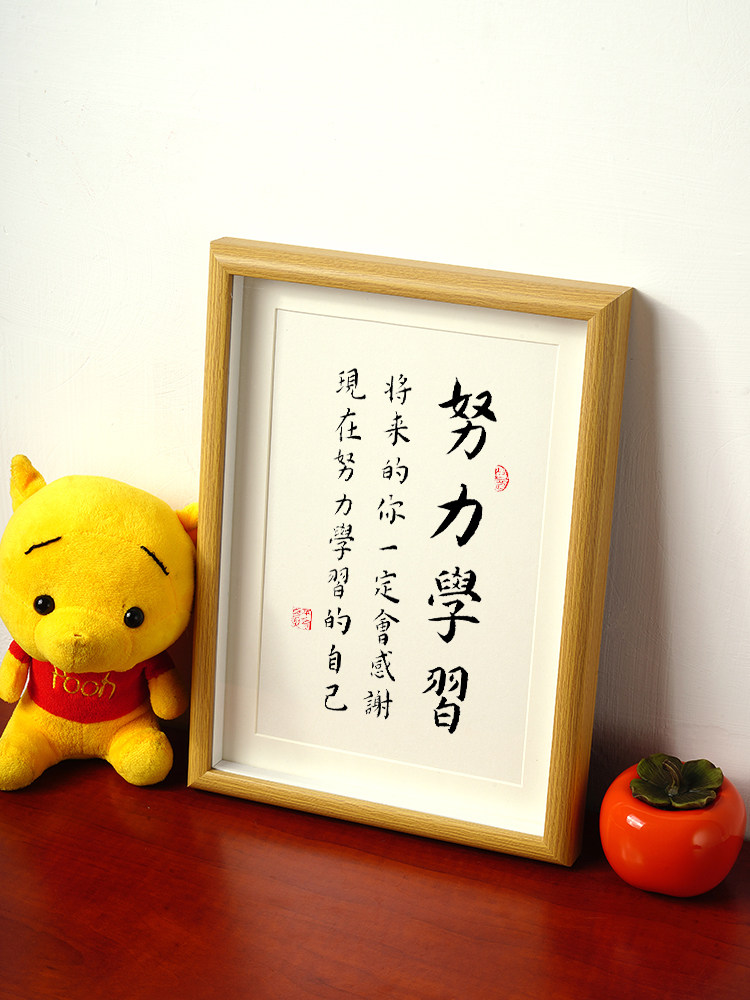 努力學習
将来的你一定會感謝
現在努力學習的自己
Pooh